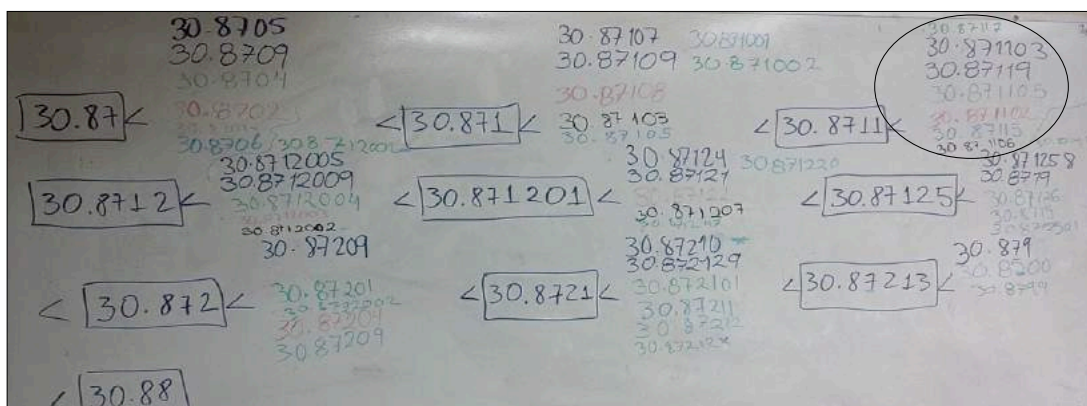 30.8705
30.8709
30.8704
30.8702
30.8706 /
30.87 <
30.87107
30.87109 30.871002
30.87108
30.87103
30.87105
< 30.871 <
30.87117
30.871103
30.87119
30.871105
30.871102
30.87115
30.871106
< 30.8711 <
30.8712005
30.8712009
30.8712004
30.8712002
30.8712 <
30.87124 30.871220
30.87121
30.871207
< 30.871201 <
30.871258
30.8719
30.87126
< 30.87125 <
30.87209
30.87201
30.87204
30.87209
< 30.872 <
30.87210
30.872129
30.872101
30.87211
30.87212
< 30.8721 <
30.879
30.8799
< 30.87213 <
< 30.88